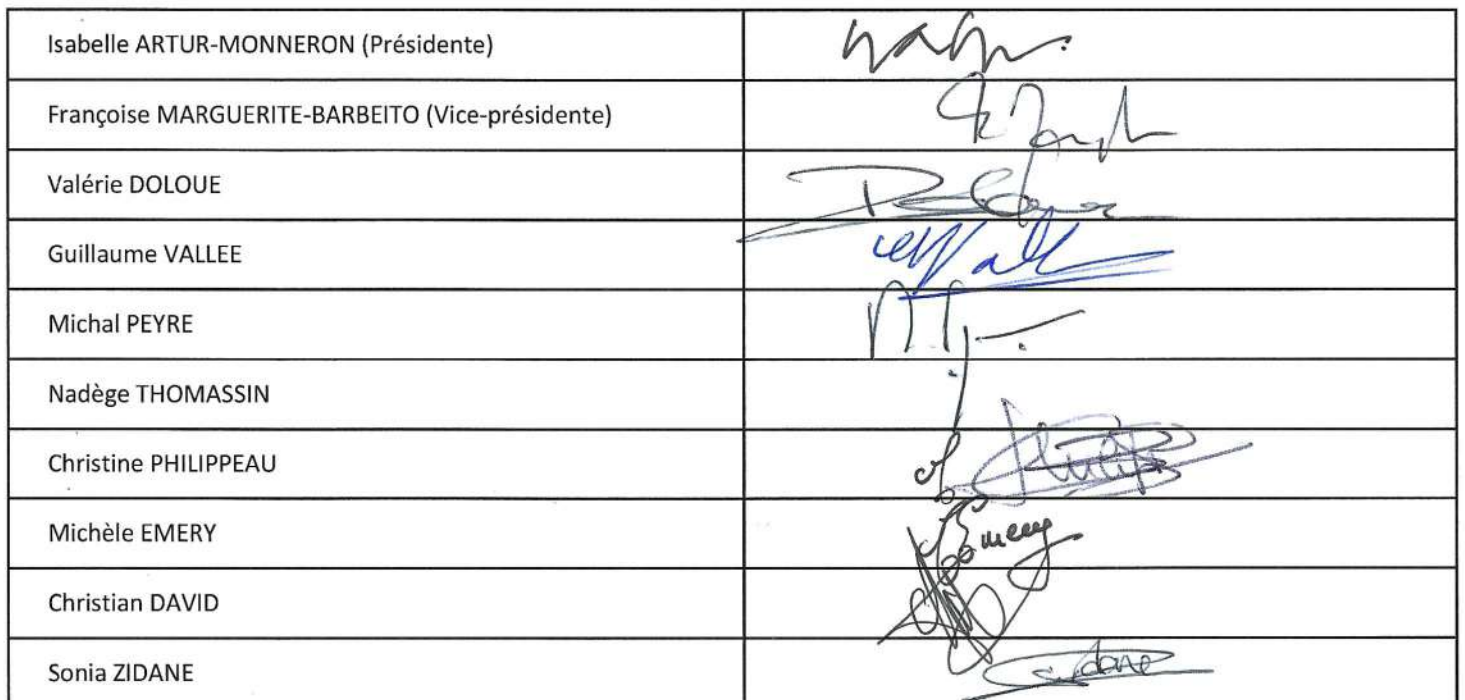 Isabelle ARTUR-MONNERON (Présidente)
Françoise MARGUERITE-BARBEITO (Vice-présidente)
Valérie DOLOUE
Guillaume VALLEE
Michal PEYRE
Nadège THOMASSIN
Christine PHILIPPEAU
Michèle EMERY
Christian DAVID
Sonia ZIDANE